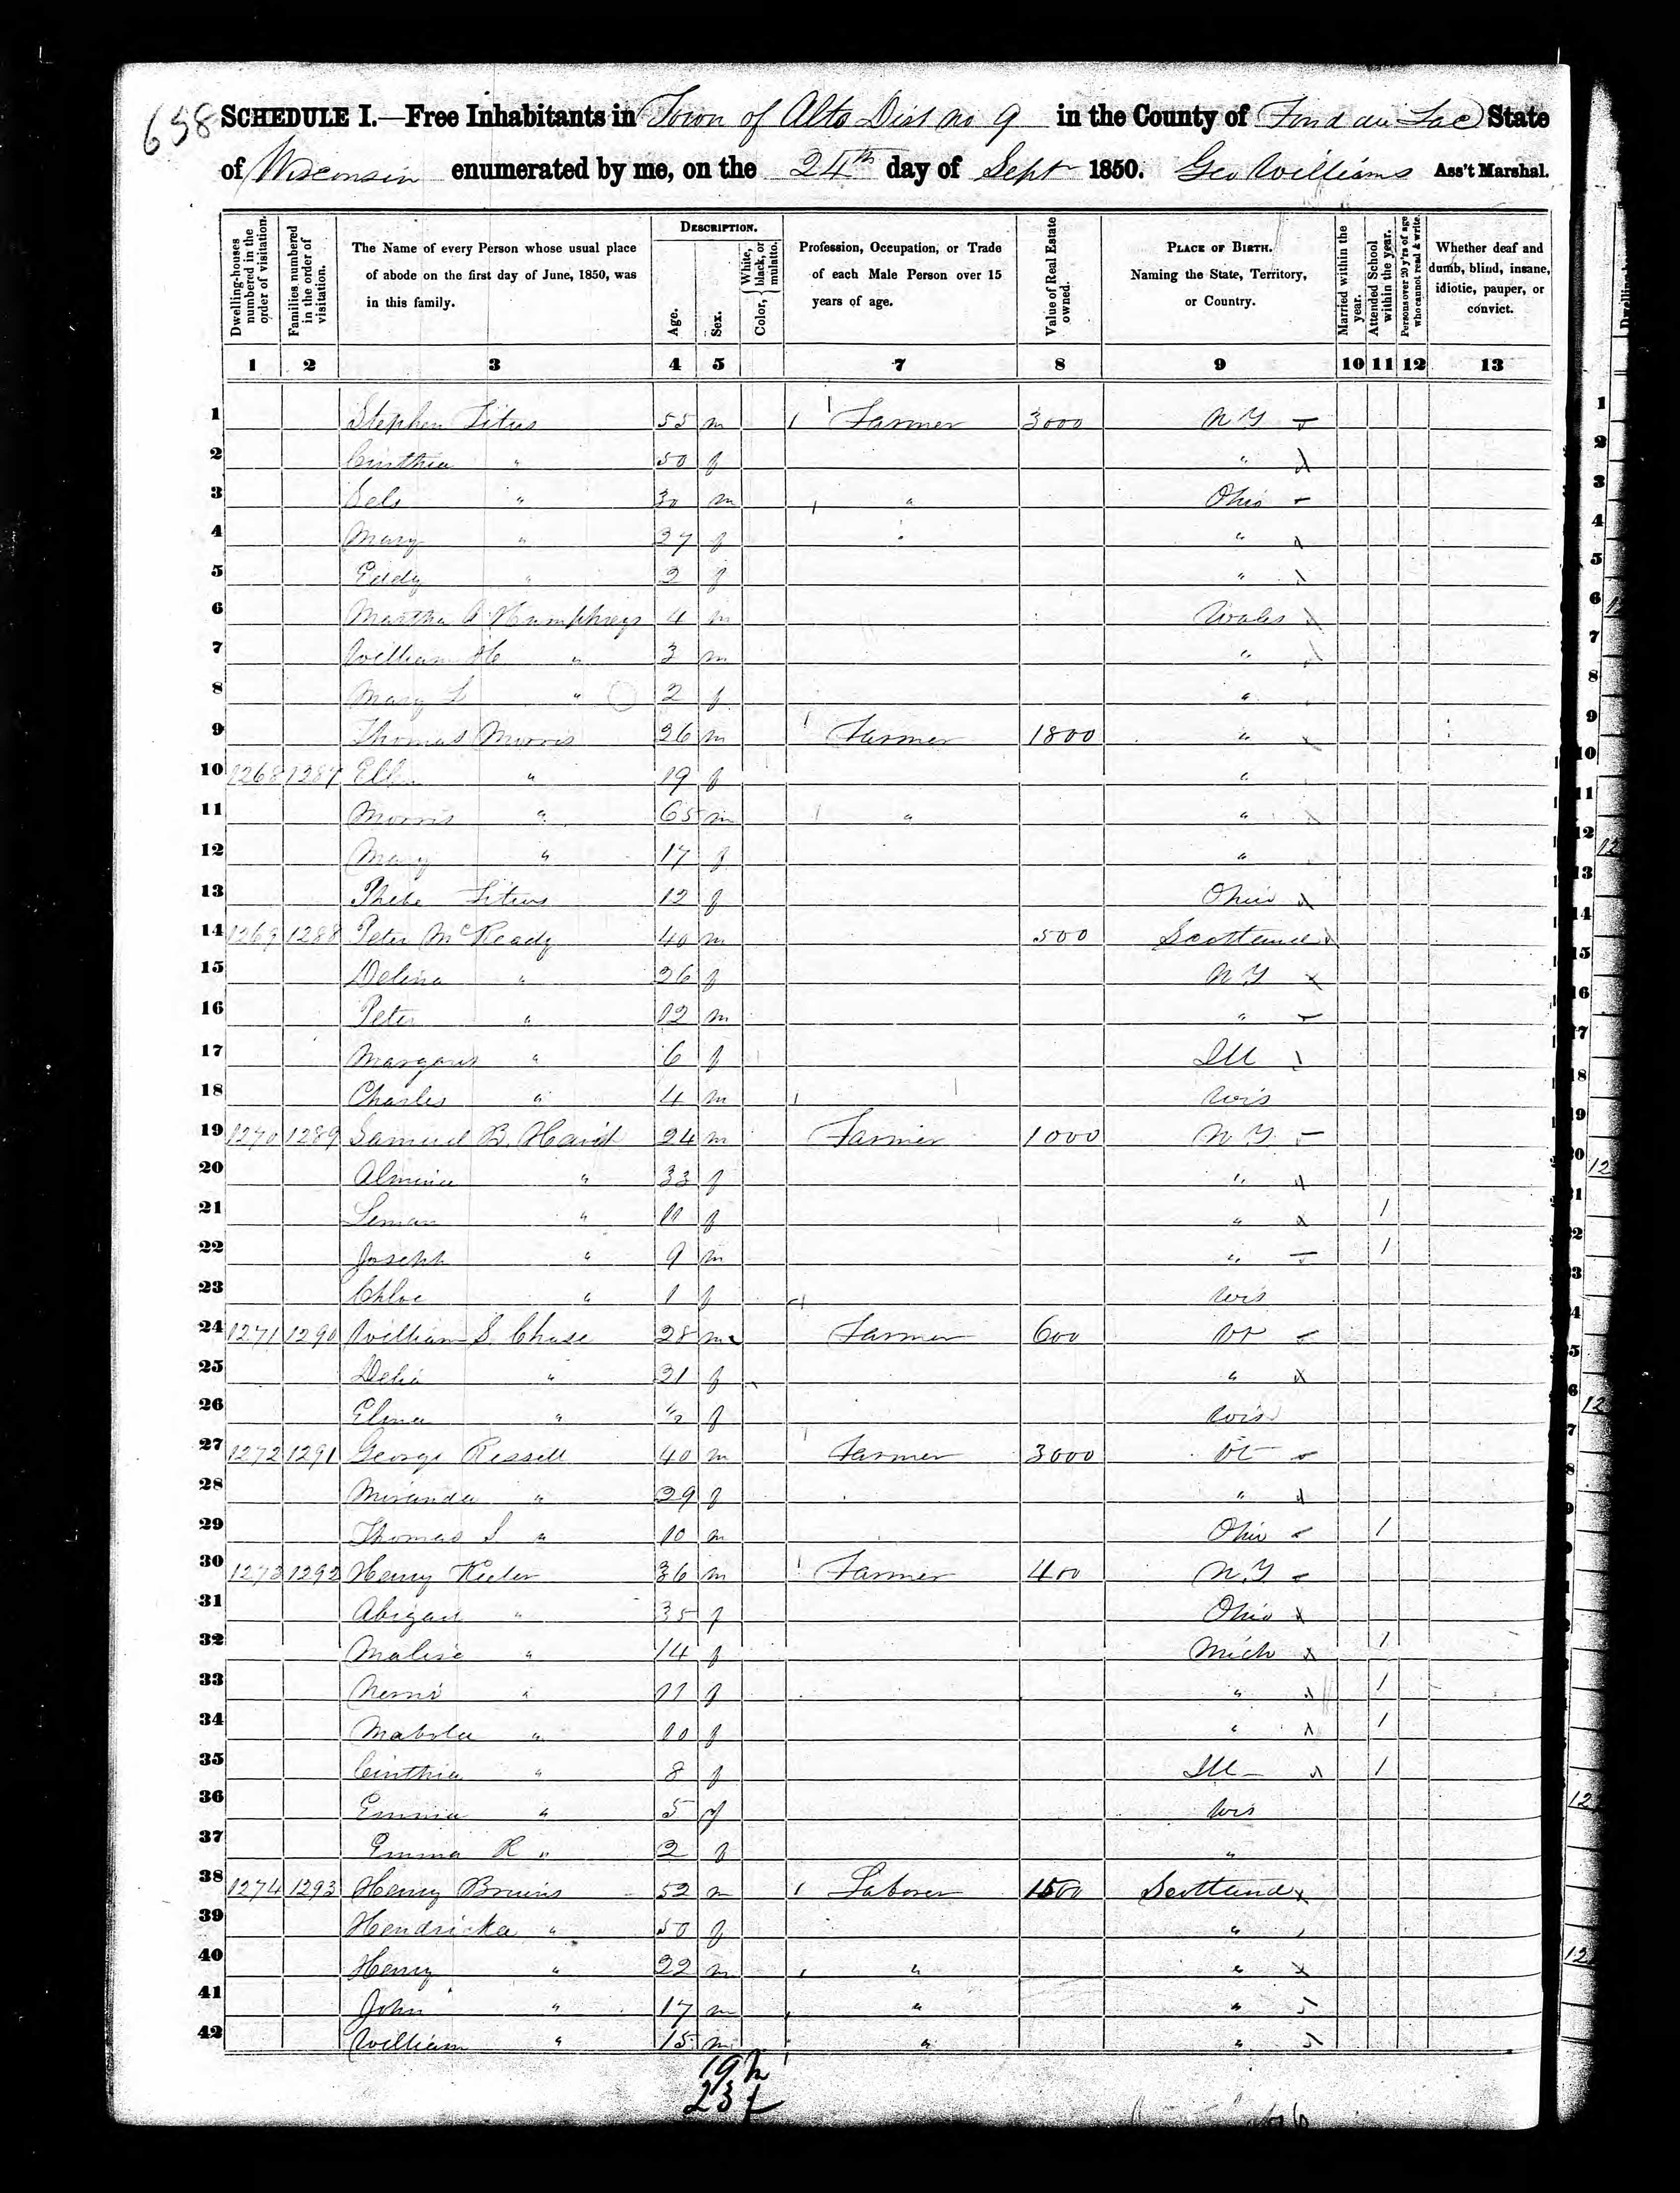 658 SCHEDULE I.—Free Inhabitants in Town of Alto Dist no 9 in the County of Fond du Lac State
of Wisconsin enumerated by me, on the 24th day of Sept 1850. Geo Williams Ass't Marshal.
Dwelling-houses numbered in the order of visitation.
Families numbered in the order of visitation.
The Name of every Person whose usual place of abode on the first day of June, 1850, was in this family.
DESCRIPTION.
Age.
Sex.
Color, { White, black, or mulatto.
Profession, Occupation, or Trade of each Male Person over 15 years of age.
Value of Real Estate owned.
PLACE OF BIRTH. Naming the State, Territory, or Country.
Married within the year.
Attended School within the year.
Persons over 20 y'rs of age who cannot read & write.
Whether deaf and dumb, blind, insane, idiotic, pauper, or convict.
1 2 3 4 5 7 8 9 10 11 12 13
1 Stephen Titus 55 m Farmer 3000 N Y
2 Cinthia " 50 f "
3 " 30 m " Ohio
4 Mary " 27 f "
5 Eddy " 2 f "
6 Martha A Humphreys 4 m Wales
7 William H " 3 m "
8 Mary L " 2 f "
9 Thomas Morris 26 m Farmer 1800 "
10 1268 1287 " 19 f "
11 Morris " 65 m " "
12 Mary " 17 f "
13 Phebe Titus 12 f Ohio
14 1269 1288 Peter McReady 40 m 500 Scotland
15 Delina " 26 f N Y
16 Peter " 12 m "
17 Margaret " 6 f Ill
18 Charles " 4 m Wis
19 1270 1289 Samuel B. 24 m Farmer 1000 N. Y.
20 Almira " 33 f "
21 " 11 f " 1
22 Joseph " 9 m " 1
23 Chloe " 1 f Wis
24 1271 1290 William S. Chase 28 m Farmer 600 Vt
25 Delia " 21 f "
26 " f Wis
27 1272 1291 George Russell 40 m Farmer 3000 Vt
28 Miranda " 29 f "
29 Thomas S " 10 m Ohio 1
30 1273 1292 Henry 36 m Farmer 400 N. Y.
31 Abigail " 35 f Ohio
32 " 14 f Mich 1
33 " 11 f " 1
34 " 10 f " 1
35 Cinthia " 8 f Ill 1
36 " 5 f Wis
37 Emma R " 2 f "
38 1274 1293 Henry Bruins 52 m Laborer 1500 Scotland
39 Hendricka " 50 f "
40 Henry " 22 m " "
41 John " 17 m " "
42 William " 15 m " "
19 m
23 f